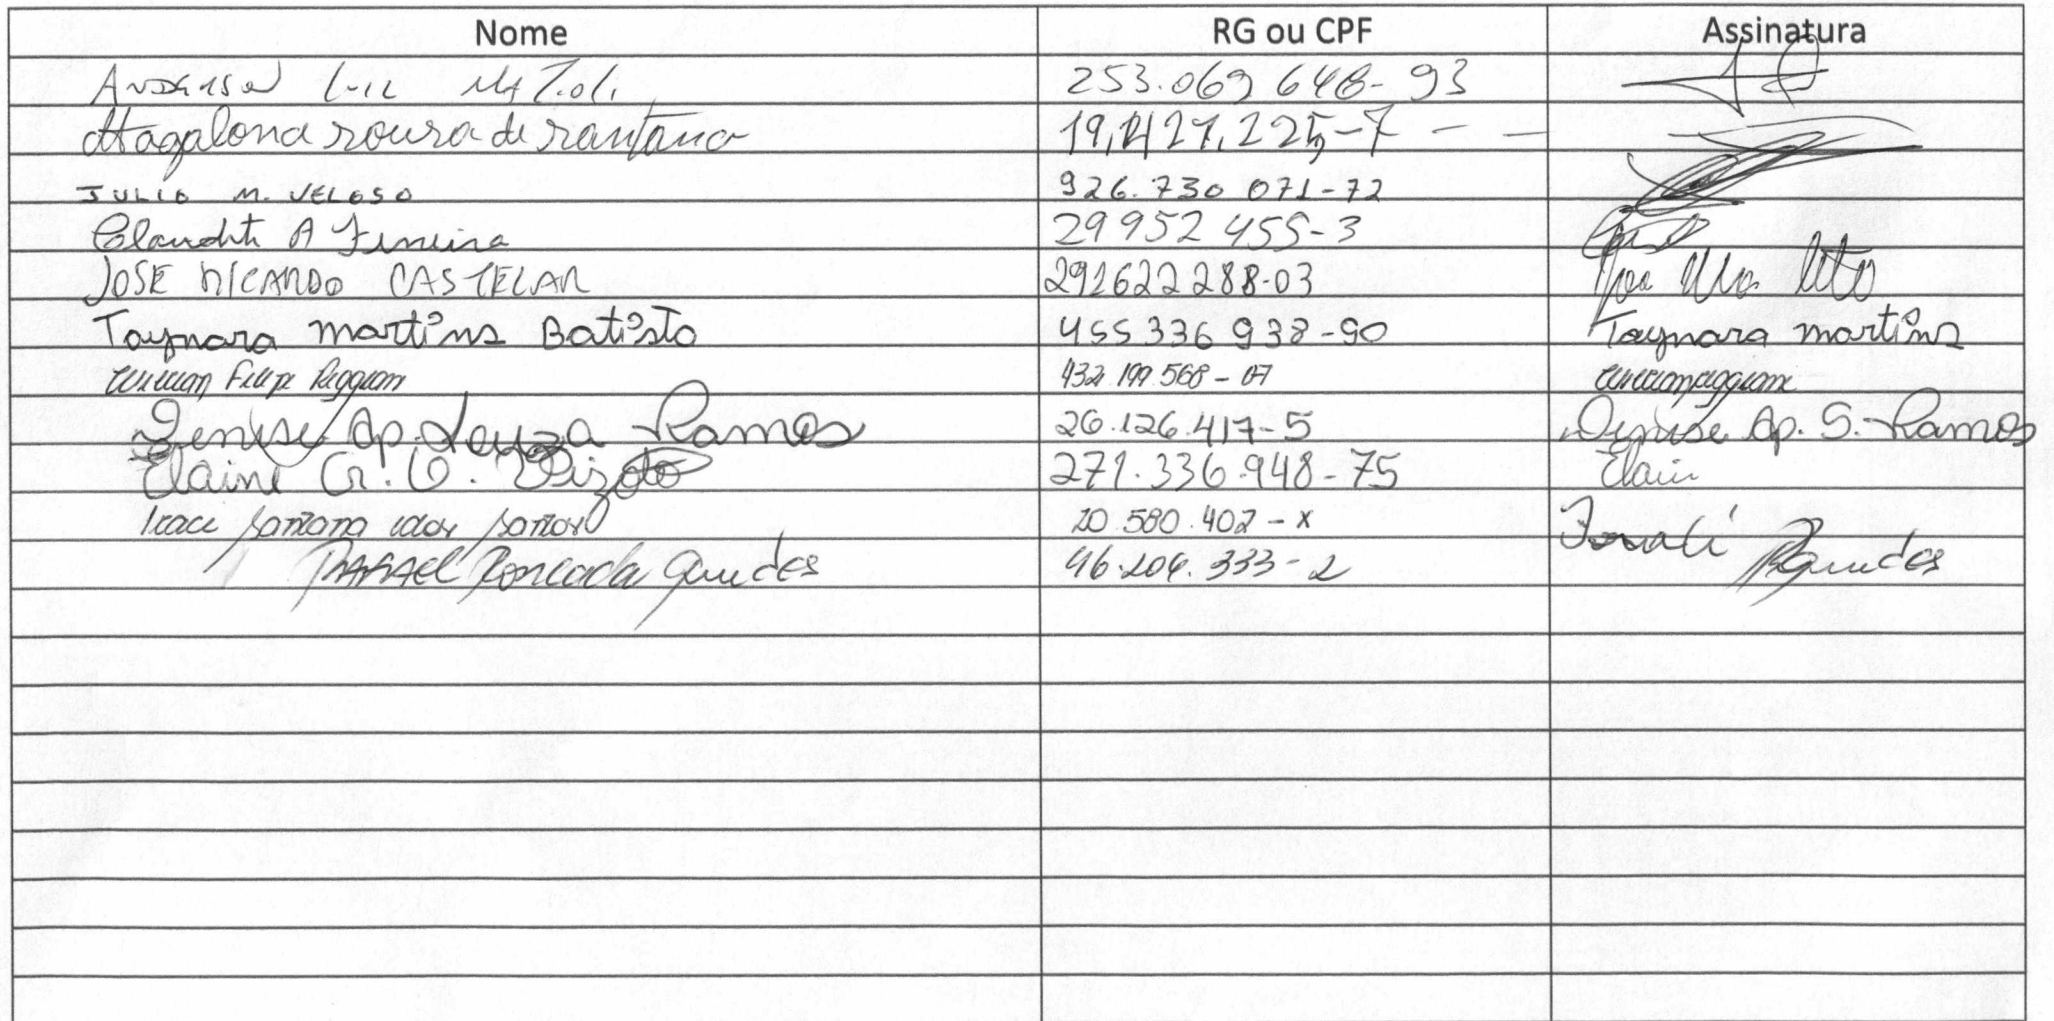 Nome RG ou CPF Assinatura
Luiz 253.069 648-93
de 19,427,225-7 - -
JULIO M. VELOSO 926.730 071-72
Claudete A Ferreira 29 952 455-3
JOSE RICARDO CASTELAR 291622288-03
Taynara martins Batista 455 336 938-90 Taynara martins
Felipe 432.199.568-07
Denise Ap. Souza Ramos 26.126.417-5 Denise Ap. S. Ramos
Elaine Cr. O. 271.336.948-75 Elaine
santana dos santos 20.580.402-x
RAFAEL Roncada Guedes 46.204.333-2 RGuedes